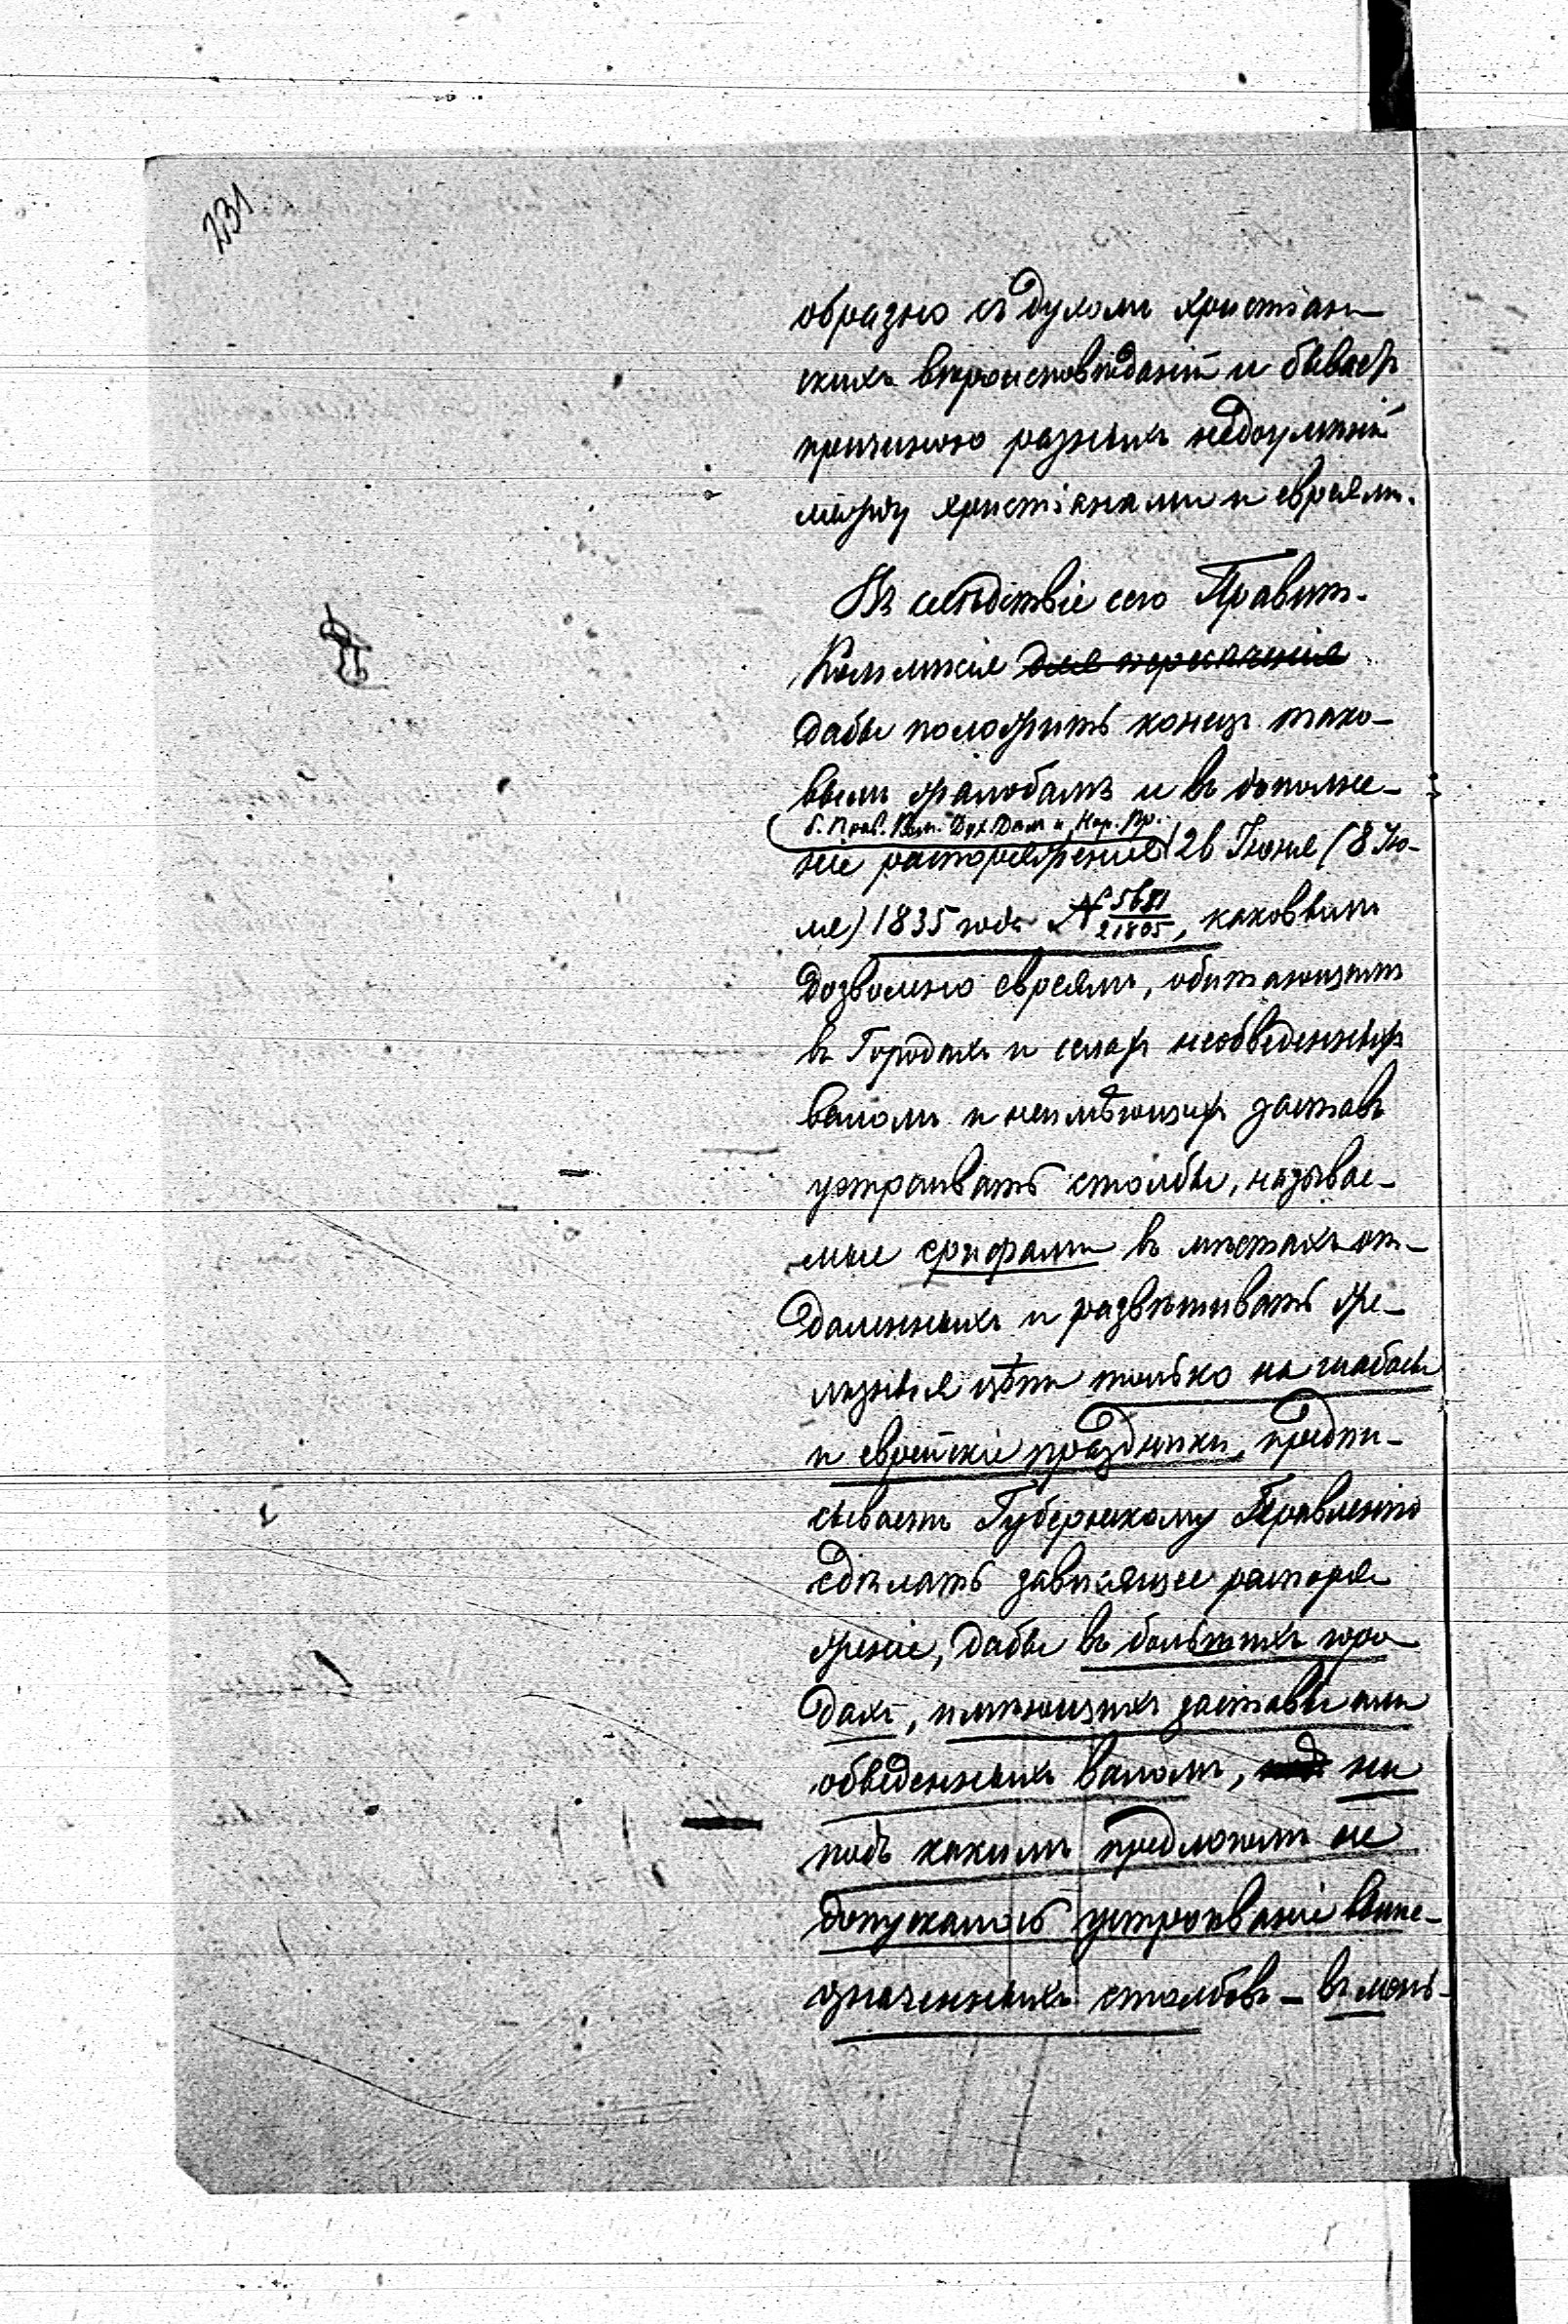 231
образно съ духомъ христіан-
скихъ вѣроисповѣданій и бываетъ
причиною разныхъ недоумѣній
между христіанами и евреями.
Въ слѣдствіе сего Правит.
Коммисія для пресѣченія
дабы положить конецъ тако-
вымъ жалобамъ и въ дополне-
б. Прав. Ком. Дух. Дѣлъ и Нар. Пр.
ніе распоряженія 26 Іюня (8 Ію-
ля) 1835 года № 5681/21805, каковымъ
дозволено евреямъ, обитающимъ
въ Городахъ и селахъ необведенныхъ
валомъ и неимѣющихъ заставъ
устраивать столбы, называе-
мые ерифами въ мѣстахъ от-
даленныхъ и развѣшивать же-
лѣзныя цѣпи только на шабасы
и еврейскіе праздники, предпи-
сываетъ Губернскому Правленію
сдѣлать зависящее распоря
женіе, дабы въ большихъ горо
дахъ, имѣющихъ заставы или
обведенныхъ валомъ, ни
подъ какимъ предлогомъ не
допускалось устроиваніе выше-
означенныхъ столбовъ - въ мень-